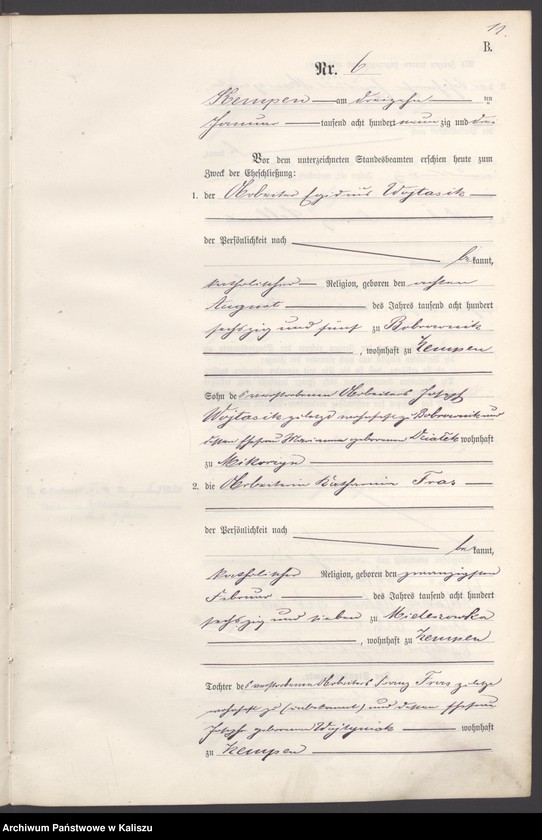 11.
B.
Nr. 6
Kempen am dreizehn ten
Januar tausend acht hundert neun zig und drei
Vor dem unterzeichneten Standesbeamten erschien heute zum
Zweck der Eheschließung:
1. der Arbeiter Egidius Wojtasik
der Persönlichkeit nach
be kannt,
katholischer Religion, geboren den achten
August des Jahres tausend acht hundert
sechszig und fünf zu Bobrownik
, wohnhaft zu Kempen
Sohn des verstorbenen Arbeiters Joseph
Wojtasik zuletzt wohnhaft zu Bobrownik und
dessen Ehefrau Marianna geborenen wohnhaft
zu Mikorzyn
2. die Arbeiterin Katharina Fras
der Persönlichkeit nach
be kannt,
katholischer Religion, geboren den zwanzigsten
Februar des Jahres tausend acht hundert
sechszig und sieben zu
, wohnhaft zu Kempen
Tochter des verstorbenen Arbeiters Franz Fras zuletzt
wohnhaft zu (unbekannt) und dessen Ehefrau
geborenen wohnhaft
zu Kempen
Archiwum Państwowe w Kaliszu